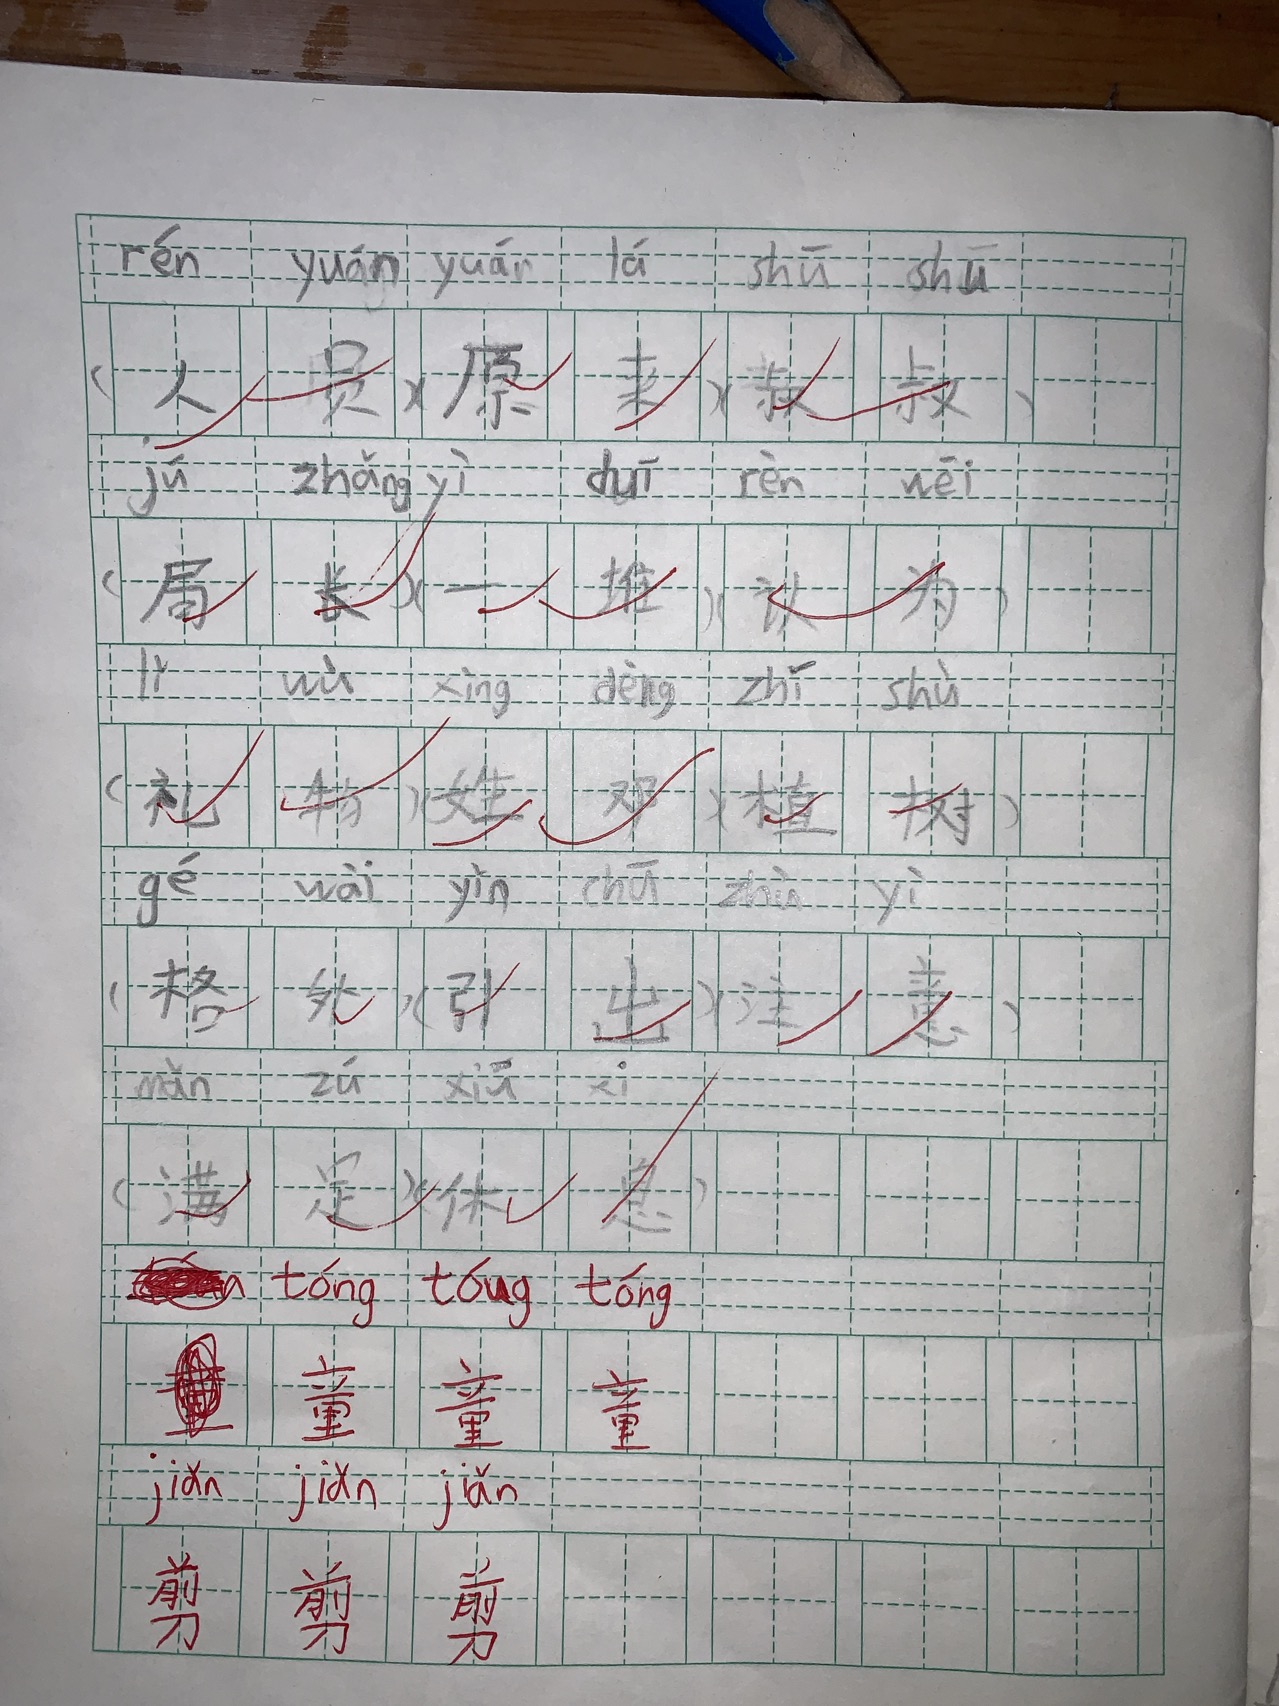 rén yuán yuán lá shū shū
(人员)(原来)(叔叔)
jú zhǎng yì duī rèn wēi
(局长)(一堆)(认为)
lǐ wù xìng dèng zhí shù
(礼物)(姓邓)(植树)
gé wài yǐn chū zhù yì
(格外)(引出)(注意)
mǎn zú xiū xi
(满足)(休息)
tóng tóug tóng
童 童 童
jiǎn jiǎn jiǎn
剪 剪 剪